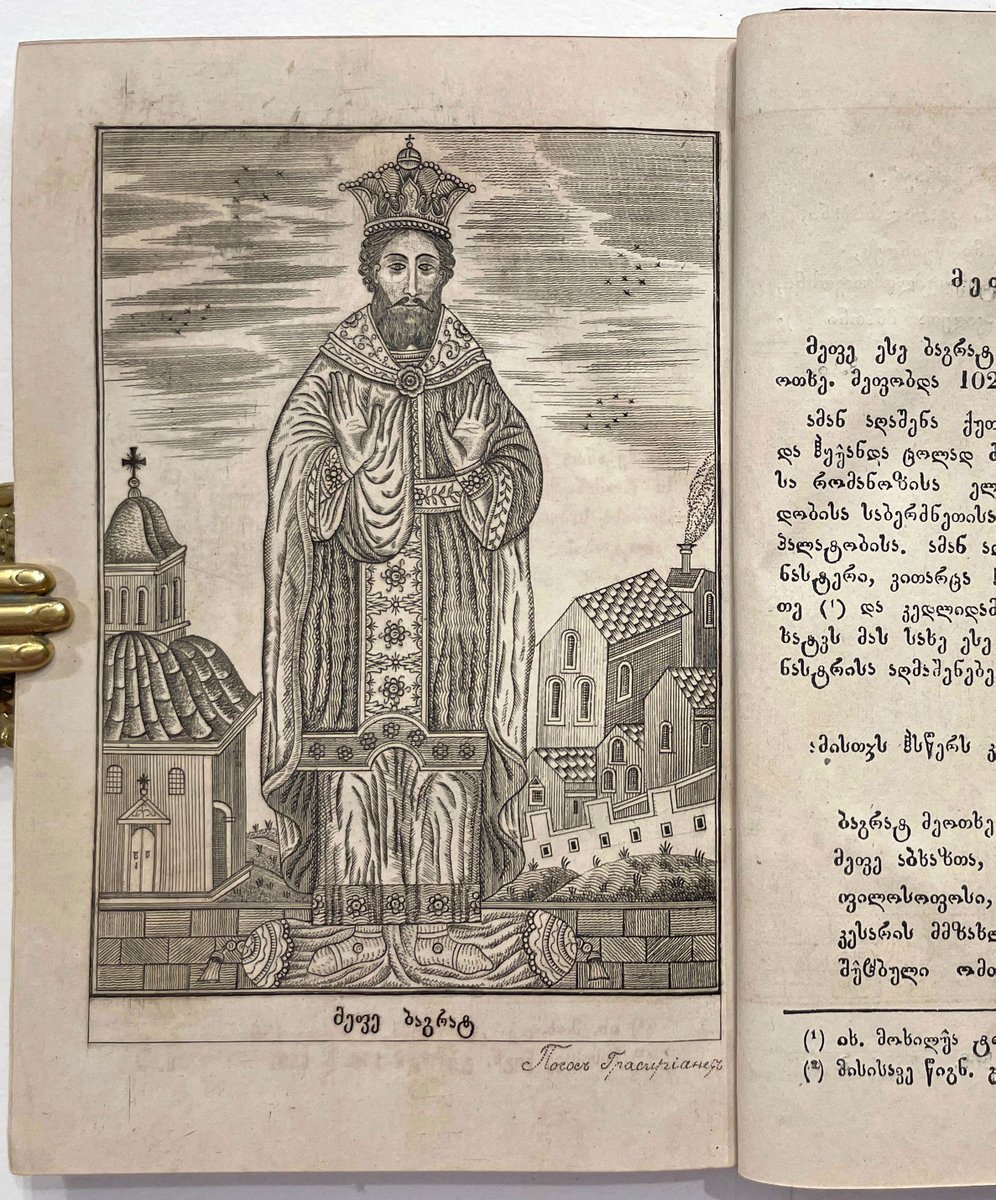 მეფე ბაგრატ
Погосъ
მეფე ესე ბაგრატ
ოთხე. მეფობდა 102
ამან აღაშენა ქუთ
და ჰყვანდა ცოლად
სა რომანოზისა ელ
დობისა საბერმნეთისა
პალატობისა. ამან აღ
ნასტერი, ვითარცა
თე (¹) და კედლიდამ
ხატვს მას სახე ესე
ნასტრისა აღმაშენებე
ამისთჳს ჰსწერს
ბაგრატ მეოთხე
მეფე აბხაზთა,
ფილოსოფოსი,
კესარის მმზახლ
(¹) იხ. მოხილუა
(²) მისისავე წიგნ.